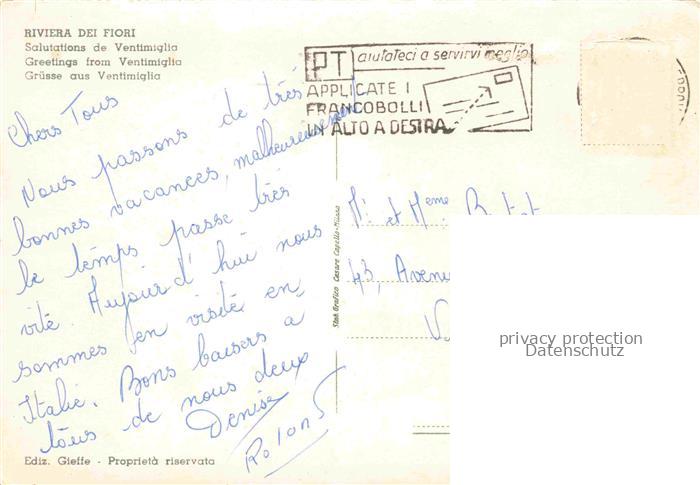 RIVIERA DEI FIORI
Salutations de Ventimiglia
Greetings from Ventimiglia
Grüsse aus Ventimiglia
PT aiutateci a servirvi meglio
APPLICATE I
FRANCOBOLLI
IN ALTO A DESTRA
Chers Tous
Nous passons de très
bonnes vacances, malheureusement
le temps passe très
vite. Aujourd'hui nous
sommes en visite en
Italie. Bons baisers à
tous de nous deux
Denise
Roland
Stab. Grafico Cesare Capello - Milano
Mr et Mme
43, Avenu
privacy protection
Datenschutz
Ediz. Gieffe - Proprietà riservata